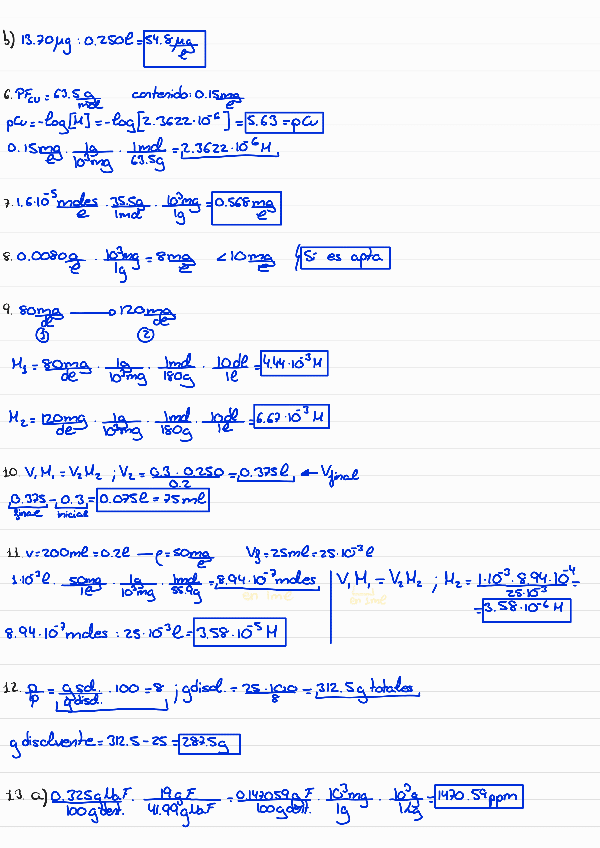 b) 13.70 µg : 0.250ℓ = 54.8 µg/ℓ
6. PFcu = 63.5 g/mol contenido: 0.15 mg/ℓ
pCu = -log[M] = -log[2.3622·10⁻⁶] = 5.63 = pCu
0.15 mg/ℓ · 1g/10³mg · 1mol/63.5g = 2.3622·10⁻⁶ M
7. 1.6·10⁻⁵ moles/ℓ · 35.5g/1mol · 10³mg/1g = 0.568 mg/ℓ
8. 0.0080 g/ℓ · 10³mg/1g = 8 mg/ℓ < 10 mg/ℓ Si es apta
9. 80 mg/dℓ → 120 mg/dℓ
① ②
M₁ = 80mg/dℓ · 1g/10³mg · 1mol/180g · 10dℓ/1ℓ = 4.44·10⁻³ M
M₂ = 120mg/dℓ · 1g/10³mg · 1mol/180g · 10dℓ/1ℓ = 6.67·10⁻³ M
10. V₁M₁ = V₂M₂ ; V₂ = 0.3 · 0.250/0.2 = 0.375ℓ ← Vfinal
0.375 - 0.3 = 0.075ℓ = 75mℓ
final inicial
11. v = 200mℓ = 0.2ℓ → ρ = 50 mg/ℓ Vf = 25mℓ = 25·10⁻³ℓ
1·10⁻³ℓ · 50mg/1ℓ · 1g/10³mg · 1mol/55.9g = 8.94·10⁻⁷ moles V₁M₁ = V₂M₂ ; M₂ = 1·10⁻³·8.94·10⁻⁴/25·10⁻³ =
en 1mℓ en 1mℓ = 3.58·10⁻⁶ M
8.94·10⁻⁷ moles : 25·10⁻³ℓ = 3.58·10⁻⁵ M
12. p/p = g sol./g disol. · 100 = 8 ; g disol. = 25·100/8 = 312.5 g totales
g disolvente = 312.5 - 25 = 287.5g
13. a) 0.325g NaF/100g dent. · 19g F/41.99g NaF = 0.147059g F/100g dent. · 10³mg/1g · 10³g/1kg = 1470.59 ppm